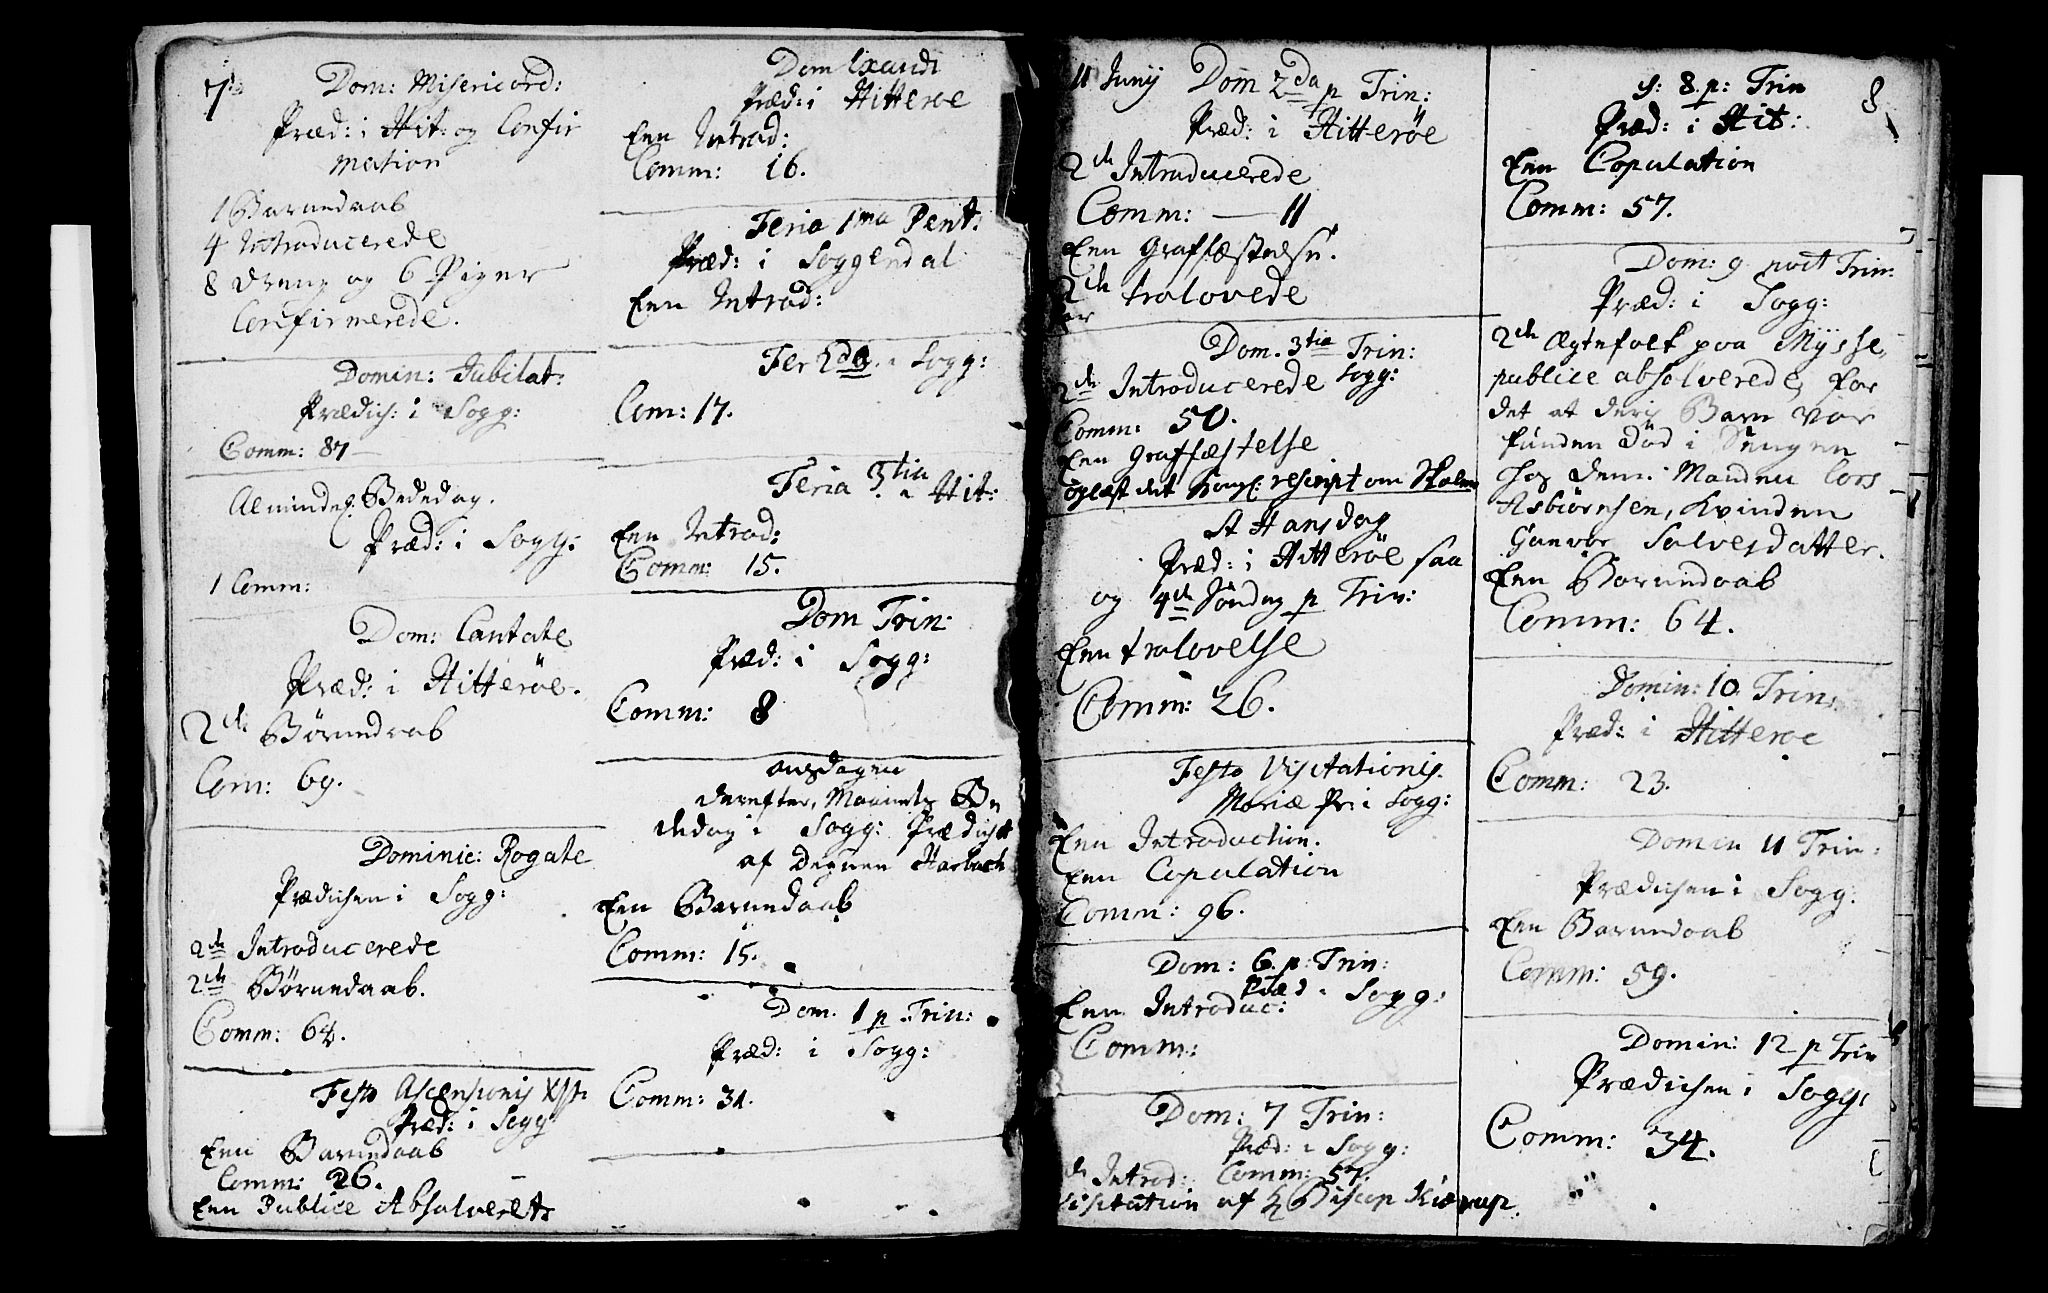 7.
Dom: Misericord:
Præd: i Hit: og Confir
mation
1 Barnedaab
4 Introducerede
8 Dreng og 6 Piger
Confirmerede.
Domin: Jubilat:
Prædich: i Sogg:
Comm: 87
Almindel: Bededag.
Præd: i Sogg:
1 Comm:
Dom: Cantate
Præd: i Hitterøe.
2de Børnedaab
Com: 69.
Dominic: Rogate
Prædichen i Sogg:
2de Introducerede
2de Børnedaab.
Comm: 64.
Festo Ascensionis Xsti
Præd: i Sogg
Een Barnedaab
Comm: 26.
Een Publice Absolveret
Dom Exaudi
Præd: i Hitterøe
Een Introd:
Comm: 16.
Feria 1ma Pent:
Præd: i Soggendal
Een Introd:
Fer 2da i Sogg:
Com: 17.
Feria 3tia i Hit:
Een Introd:
Comm: 15.
Dom Trin:
Præd: i Sogg:
Comm: 8
onsdagen
derefter, Maanets Be
dedag i Sogg: Prædichet
af Degnen Harbach
Een Barnedaab
Comm: 15.
Dom. 1 p Trin:
Præd: i Sogg:
Comm: 31.
11 Junij Dom 2da p Trin:
Præd: i Hitterøe
2de Introducerede
Comm: — 11
Een Graffæstelse.
2de trolovede
Par
Dom. 3tia Trin:
2de Introducerede Sogg:
Comm: 50.
Een Graffæstelse
oplæst det Kongl: rescript om Skolen
St Hansdag
Præd: i Hitterøe saa
og 4de Søndag p Trin:
Een trolovelse
Comm: 26.
Festo Visitationis
Mariæ Pr: i Sogg:
Een Introduction.
Een Copulation
Comm: 96.
Dom: 6. p: Trin:
Præd i Sogg:
Een Introduc:
Comm:
Dom: 7 Trin:
Præd: i Sogg:
de Introd: Comm: 57.
visitation af H Biscop Kiærup.
8
S: 8. p: Trin
Præd: i Hit:
Een Copulation
Comm: 57.
Dom: 9 post Trin:
Præd: i Sogg:
2de Ægtefolk paa Mysse,
publice absolverede, for
det at deris Barn var
funden død i Sengen
hos dem: Manden Lars
Asbiørnsen, Kvinden
Gunvor Salvesdatter.
Een Barnedaab
Comm: 64.
Domin: 10 Trin:
Præd: i Hitterøe
Comm: 23.
Domin 11 Trin:
Prædichen i Sogg:
Een Barnedaab
Comm: 59.
Domin: 12 p Trin
Prædichen i Sogg:
Comm: 34.